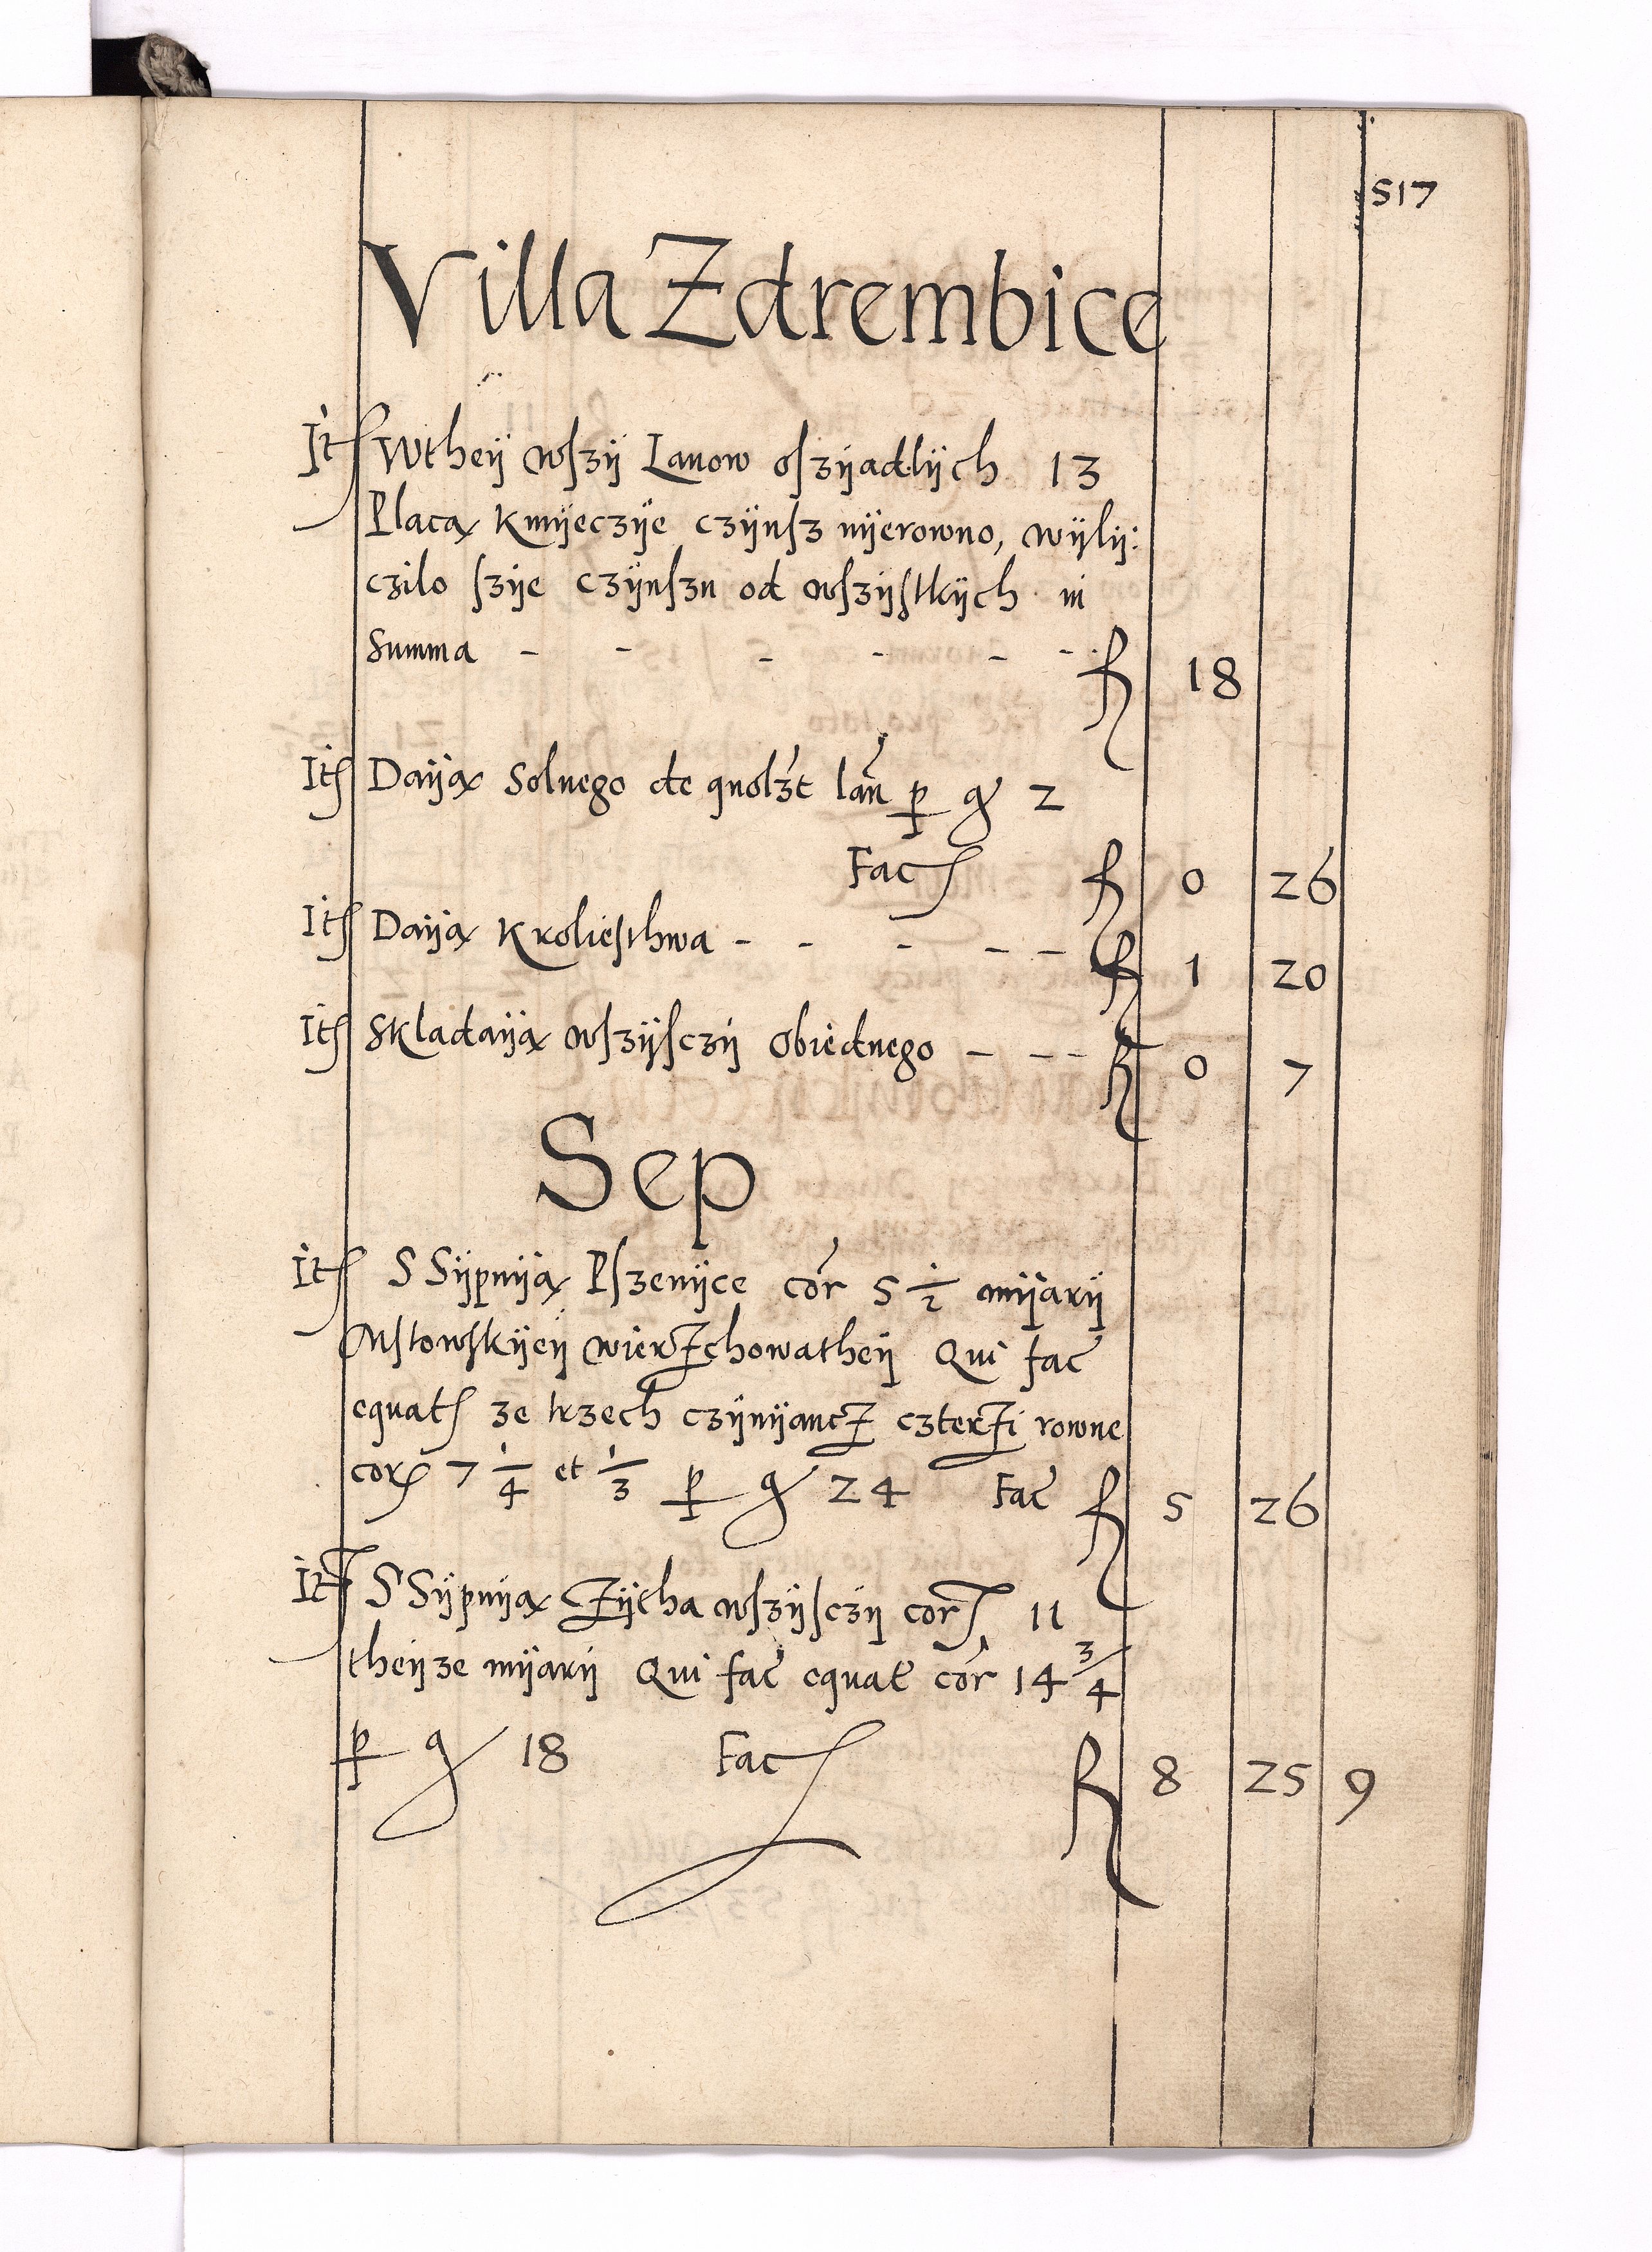 517
Villa Zdrembice
It Wtheÿ wſzÿ Lanow oſzÿadlÿch 13
Placą Kmÿeczÿe czÿnſz nÿerowno, wÿlÿ:
czilo ſzÿe czÿnſzu od wſzÿſtkÿch in
Summa - - - - - - f 18
It Daÿą Solnego de quolzt lan p gr 2
Fac f 0 26
It Daÿą Kroleſthwa - - - - - f 1 20
It Skladaÿą wſzÿſczÿ Obiednego - - - f 0 7
Sep
It SSÿpuÿą Pſzenÿce cor 5 1/2 mÿarÿ
Mſtowſkÿeÿ wierzchowatheÿ Qui fac
equat ze trzech czÿnÿancz czterzi rowne
cor 7 1/4 et 1/3 p gr 24 Fac f 5 26
It SSÿpuÿą Zÿtha wſzÿſczÿ cor 11
theÿze mÿarÿ Qui fac equat cor 14 3/4
p gr 18 Fac f 8 25 9